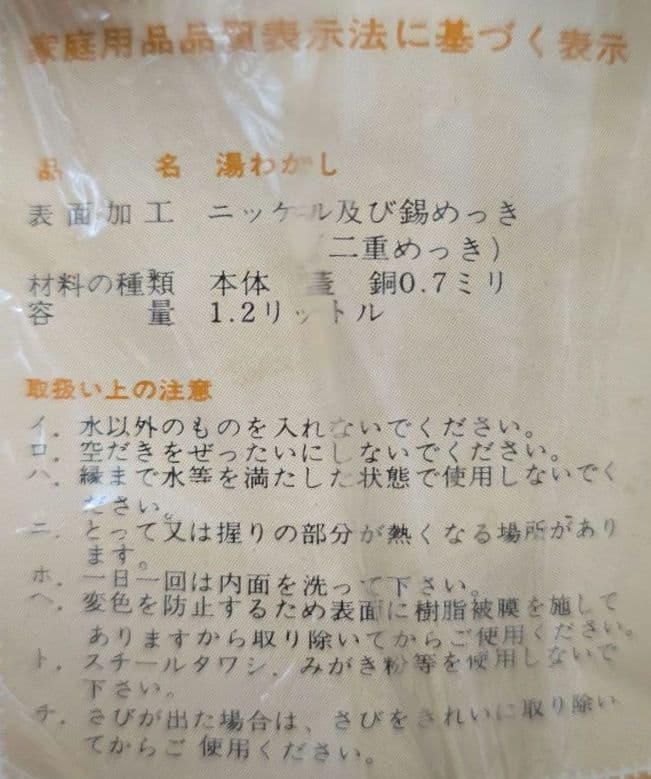 家庭用品品質表示法に基づく表示
品　　　名　湯わかし
表面加工　ニッケル及び錫めっき
（二重めっき）
材料の種類　本体　蓋　銅0.7ミリ
容　　　量　1.2リットル
取扱い上の注意
イ．水以外のものを入れないでください。
ロ．空だきをぜったいにしないでください。
ハ．縁まで水等を満たした状態で使用しないでく
ださい。
ニ．とって又は握りの部分が熱くなる場所があり
ます。
ホ．一日一回は内面を洗って下さい。
ヘ．変色を防止するため表面に樹脂被膜を施して
ありますから取り除いてからご使用ください。
ト．スチールタワシ．みがき粉等を使用しないで
下さい。
チ．さびが出た場合は、さびをきれいに取り除い
てからご 使用ください。